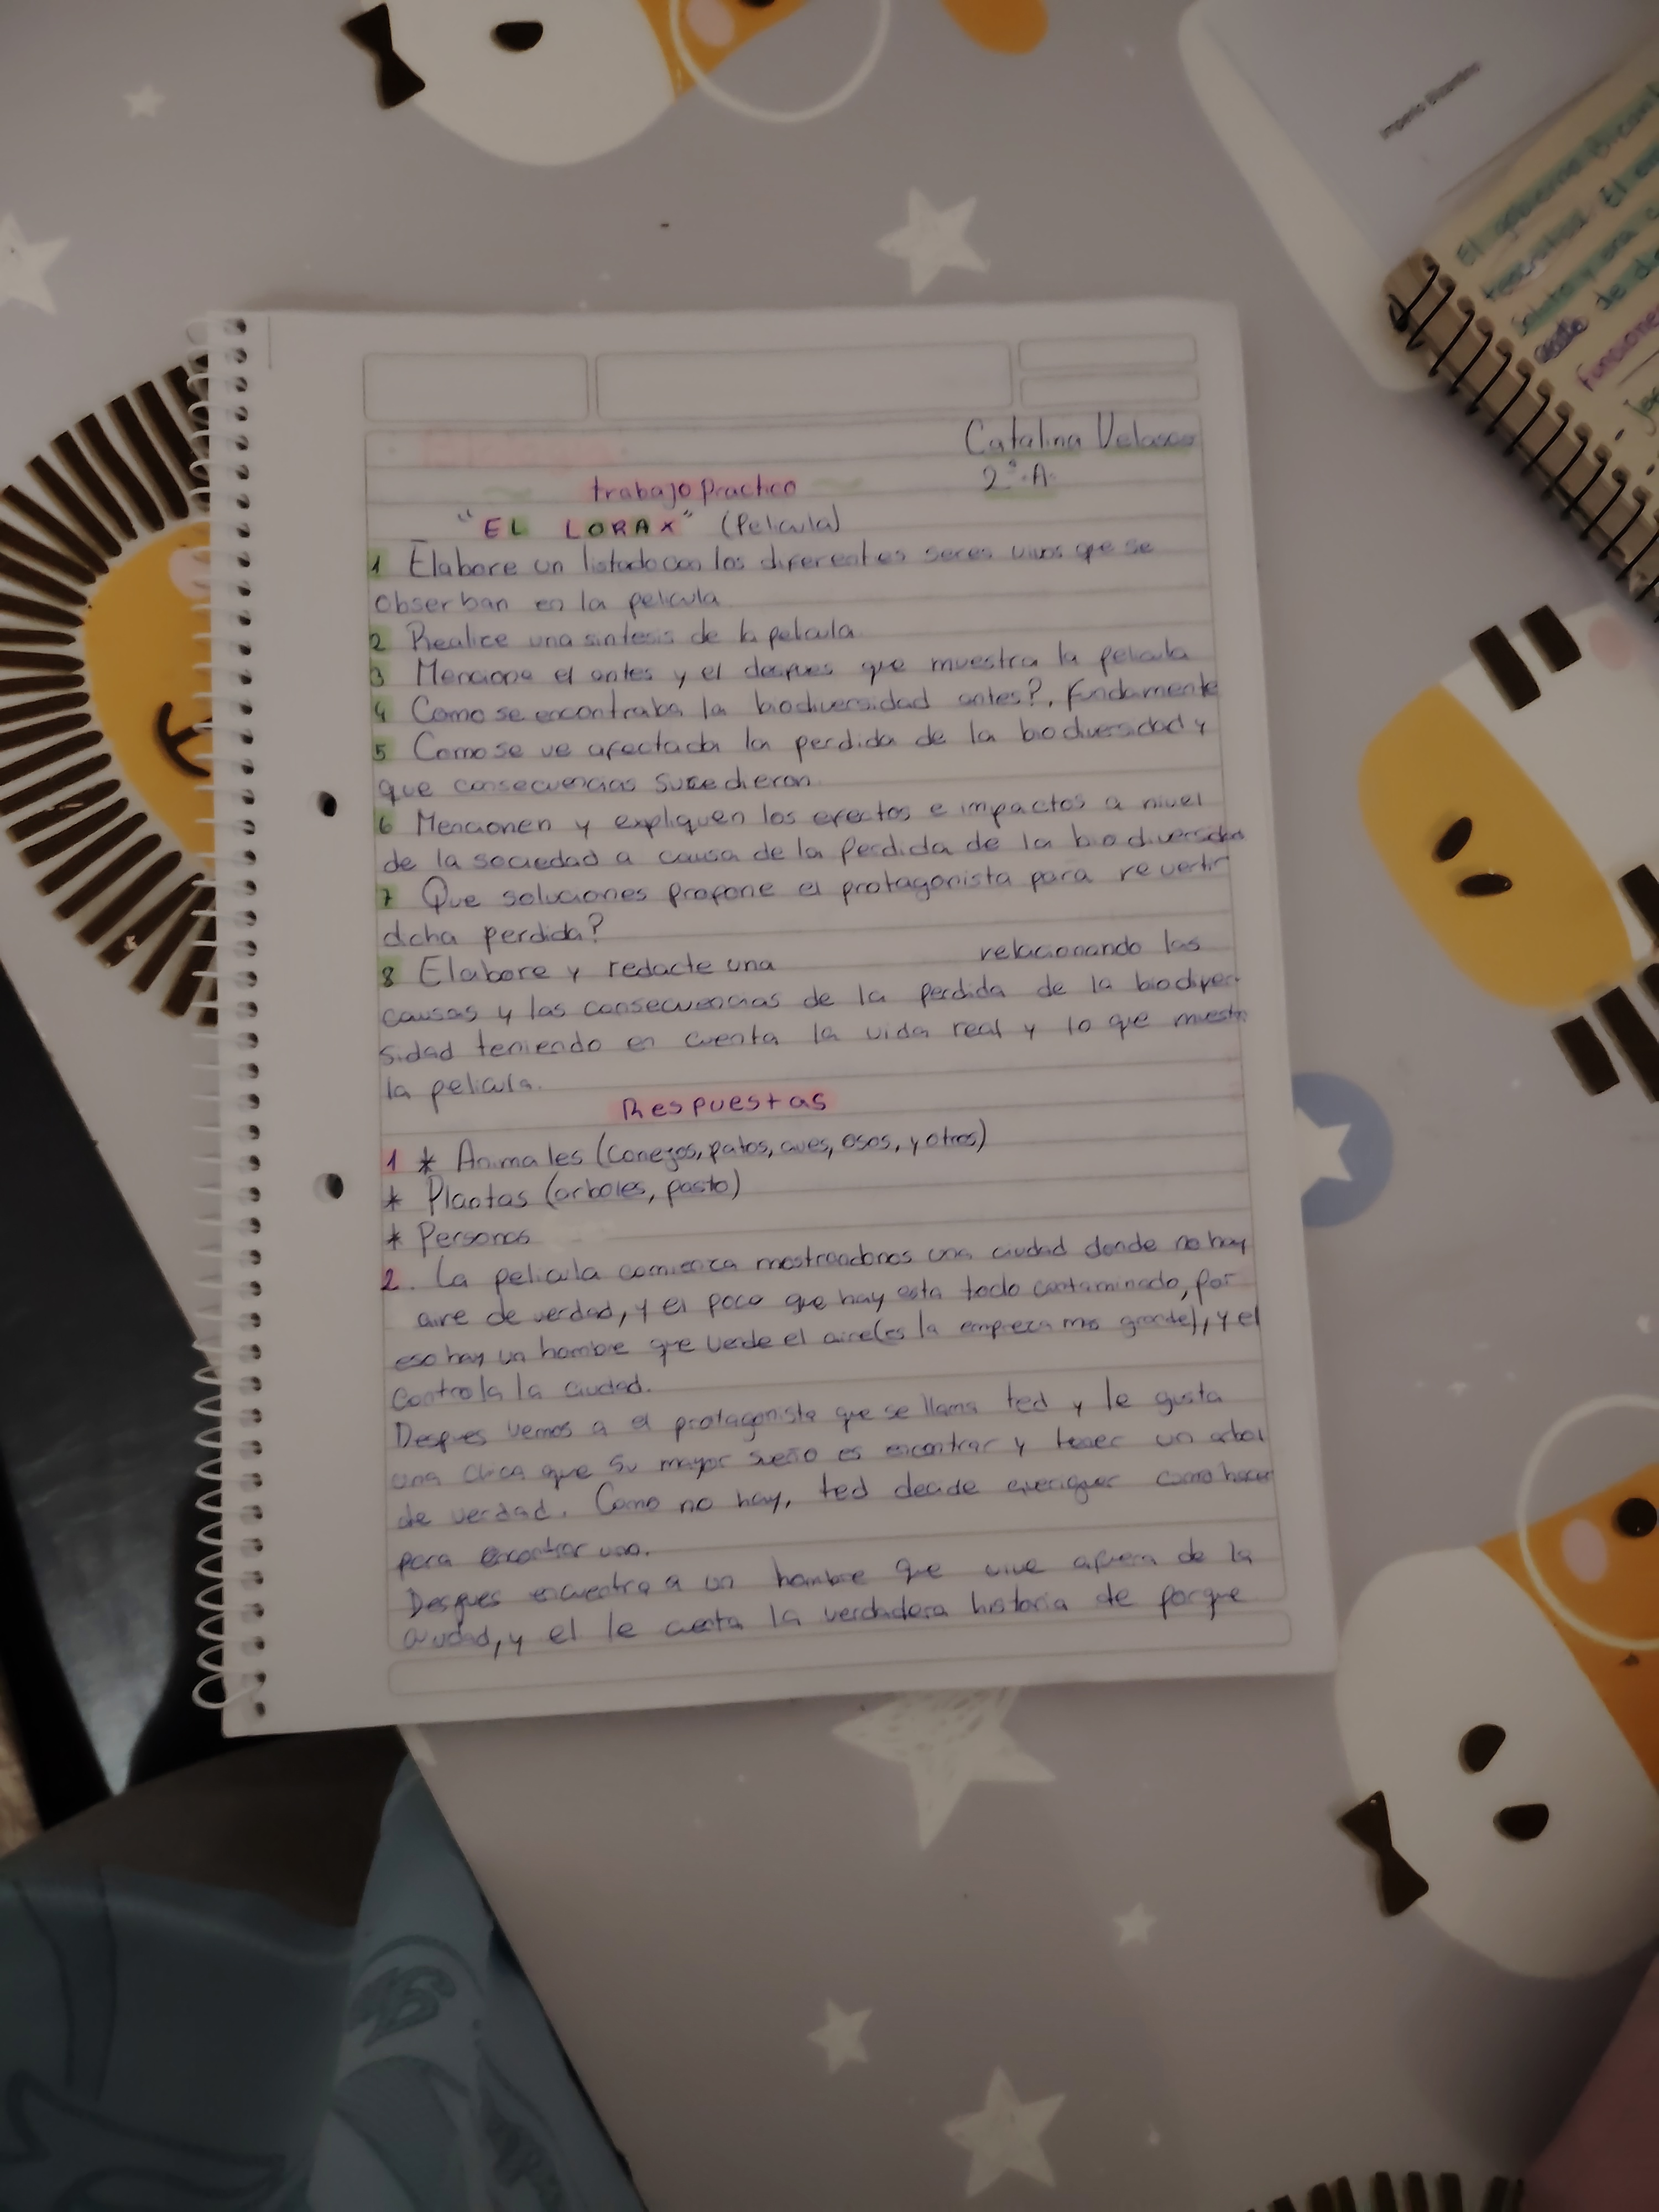 Catalina Velasco
2° A
trabajo practico
"EL LORAX" (Pelicula)
1 Elabore un listado con los diferentes seres vivos que se
obserban en la pelicula
2 Realice una sintesis de la pelicula
3 Mencione el antes y el despues que muestra la pelicula
4 Como se encontraba la biodiversidad antes?, Fundamente
5 Como se ve afectada la perdida de la biodiversidad y
que consecuencias sucedieron
6 Mencionen y expliquen los efectos e impactos a nivel
de la sociedad a causa de la perdida de la biodiversidad
7 Que soluciones propone el protagonista para revertir
dicha perdida?
8 Elabore y redacte una relacionando las
causas y las consecuencias de la perdida de la biodiver-
sidad teniendo en cuenta la vida real y lo que muestra
la pelicula.
Respuestas
1 * Animales (conejos, patos, aves, osos, y otros)
* Plantas (arboles, pasto)
* Personas
2. La pelicula comienza mostrandonos una ciudad donde no hay
aire de verdad, y el poco que hay esta todo contaminado, por
eso hay un hombre que vende el aire (es la empreca mas grande), y el
controla la ciudad.
Despues vemos a el protagonista que se llama ted y le gusta
una chica que su mayor sueño es encontrar y tener un arbol
de verdad. Como no hay, ted decide averiguar como hacer
para encontrar uno.
Despues encuentra a un hombre que vive afuera de la
ciudad, y el le cuenta la verdadera historia de porque
Imperio Bizantino
El gobierno
El em
de
Funciones